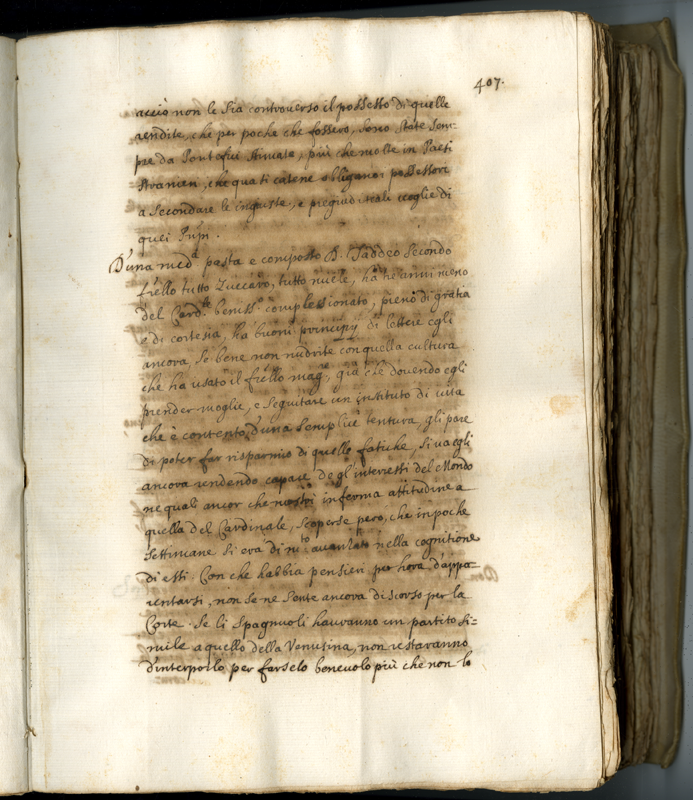 407.
acciò non le sia controverso il possesso di quelle
rendite, che per poche che fossero, sono state sem-
pre da Pontefici stimate, più che molte in Paesi
stranieri, che quasi catene obligano i possessori
a secondare le ingiuste, e pregiuditiali voglie di
quei Prnpi.
D'una medª pasta e composto D. Taddeo secondo
friello tutto Zuccaro, tutto miele, ha tre anni meno
del Cardle benissº complessionato, pieno di gratia
e di cortesia, ha buoni principij di lettere egli
ancora, se bene non nudrite con quella cultura
che ha usato il friello magre, già che dovendo egli
prender moglie, e seguitare un instituto di vita
che è contento d'una semplice tentura, gli pare
di poter far risparmio di quelle fatiche, si va egli
ancora rendendo capace de gl'interessi del Mondo
ne quali ancor che mostri inferma attitudine a
quella del Cardinale, scoperse però, che in poche
settimane si era di mto avanzato nella cognitione
di essi. Con che habbia pensieri per hora d'appa-
rentarsi, non se ne sente ancora discorso per la
Corte. Se li Spagnuoli hauranno un partito si=
mile a quello della Venusina, non restaranno
d'interporlo per farselo benevolo più che non lo